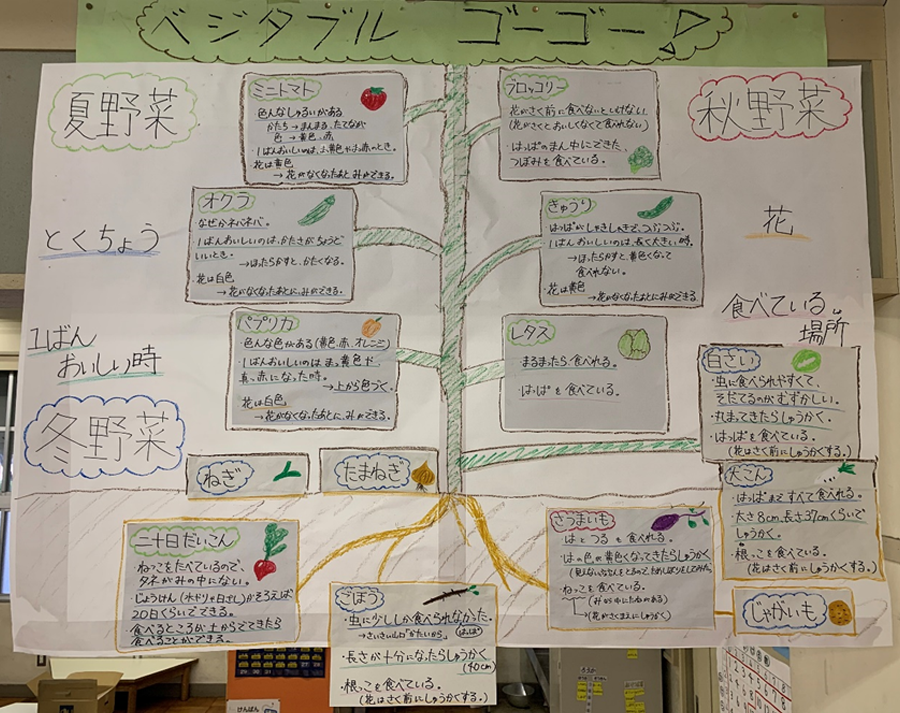 ベジタブル ゴーゴー!
夏野菜
とくちょう
1ばん
おいしい時
冬野菜
ミニトマト
色んなしゅるいがある
かたち→まんまる、たてなが
色→黄色、赤
・1ばんおいしいのは、まっ黄色やまっ赤のとき。
花は黄色
→花がなくなったあと、みができる。
オクラ
なぜかネバネバ。
・1ばんおいしいのは、かたさがちょうど
いいとき。
→ほったらかすと、かたくなる。
・花は白色
→花がなくなったあとに、みができる。
パプリカ
色んな色がある(黄色、赤、オレンジ)
・1ばんおいしいのは まっ黄色や
真っ赤になった時。
→上から色づく。
花は白色
→花がなくなったあとに、みができる。
ねぎ
たまねぎ
二十日だいこん
・ねっこをたべているので、
タネがみの中にない。
・じょうけん(水やり・日ざし)がそろえば
20日くらいでできる。
・食べるところが土からでてきたら
食べることができる。
ごぼう
・虫に少ししか食べられなかった
はっぱ
・長さが十分になったらしゅうかく
(40cm)
・根っこを食べている。
(花はさく前にしゅうかくする。)
秋野菜
花
食べている
場所
ブロッコリー
花がさく前に食べないといけない
(花がさくとおいしくなくて食べれない)
・はっぱのまん中にできた、
つぼみを食べている。
きゅうり
はっぱがしゃきしゃきで、つぶつぶ。
・1ばんおいしいのは、長く大きい時。
→ほったらかすと、黄色くなって
食べれない。
・花は黄色
→花がなくなったあとにみができる。
レタス
まるまったら食べれる。
はっぱを食べている。
白さい
・虫に食べられやすくて、
そだてるのがむずかしい。
・丸まってきたらしゅうかく。
・はっぱを食べている。
(花はさく前にしゅうかくする。)
大こん
・はっぱまですべて食べれる。
・太さ8cm、長さ37cmくらいで
しゅうかく。
・根っこを食べている。
(花はさく前にしゅうかくする。)
さつまいも
はとつるも食べれる。
・はの色が黄色くなってきたらしゅうかく
・ねっこを食べている。
(花がさくまえにしゅうかく)
じゃがいも